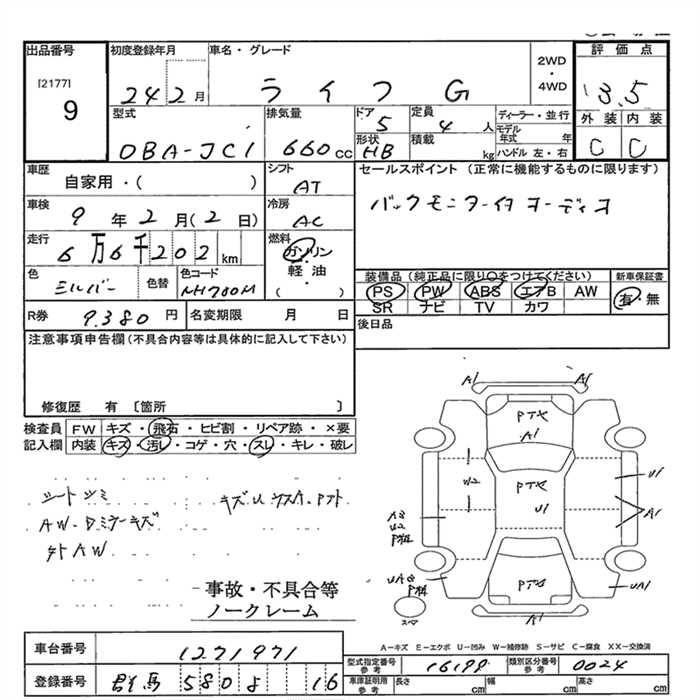 出品番号 初度登録年月 車名・グレード 2WD・4WD 評価点
[2177]
9
24 2月 ライフ G 3.5
型式 排気量 ドア 定員 ディーラー・並行 外装 内装
DBA-JC1 660cc 5 4人 モデル年式 年 C C
形状 HB 積載 kg ハンドル 左・右
車歴 シフト セールスポイント (正常に機能するものに限ります)
自家用・( ) AT
車検 冷房
9年2月(2日) AC
走行 燃料
6万6千202km ガソリン・軽油( )
色 色替 色コード 装備品 (純正品に限り○をつけてください) 新車保証書
シルバー NH700M PS PW ABS エアB AW 有・無
SR ナビ TV カワ
R券 9.380円 名変期限 月 日 後日品
注意事項申告欄 (不具合内容等は具体的に記入して下さい)
修復歴 有 〔箇所 〕
検査員 FW キズ・飛石・ヒビ割・リペア跡・×要
記入欄 内装 キズ・汚レ・コゲ・穴・スレ・キレ・破レ
シートシミ
外AW
A1 A1
A1
U1
W2
U1
A1
UA1
A1
事故・不具合等
ノークレーム
A-キズ E-エクボ U-凹み W-補修跡 S-サビ C-腐食 XX-交換済
車台番号 1271971
型式指定番号 参考 16199 類別区分番号 参考 0024
登録番号 群馬 580 よ 16
車庫証明用 参考 長さ cm 幅 cm 高さ cm